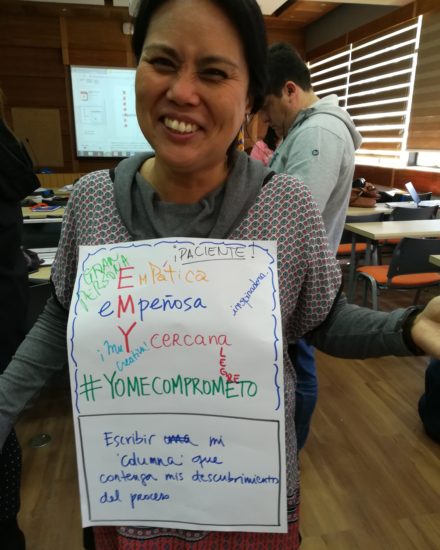 ¡PACIENTE!
GRAN
PERSONA
EMPática
empeñosa
inspiradora
¡Muy
creativa!
EMY
cercana
LEGRE
#YOMECOMPROMETO
Escribir una mi
'columna' que
contenga mis descubrimiento
del proceso